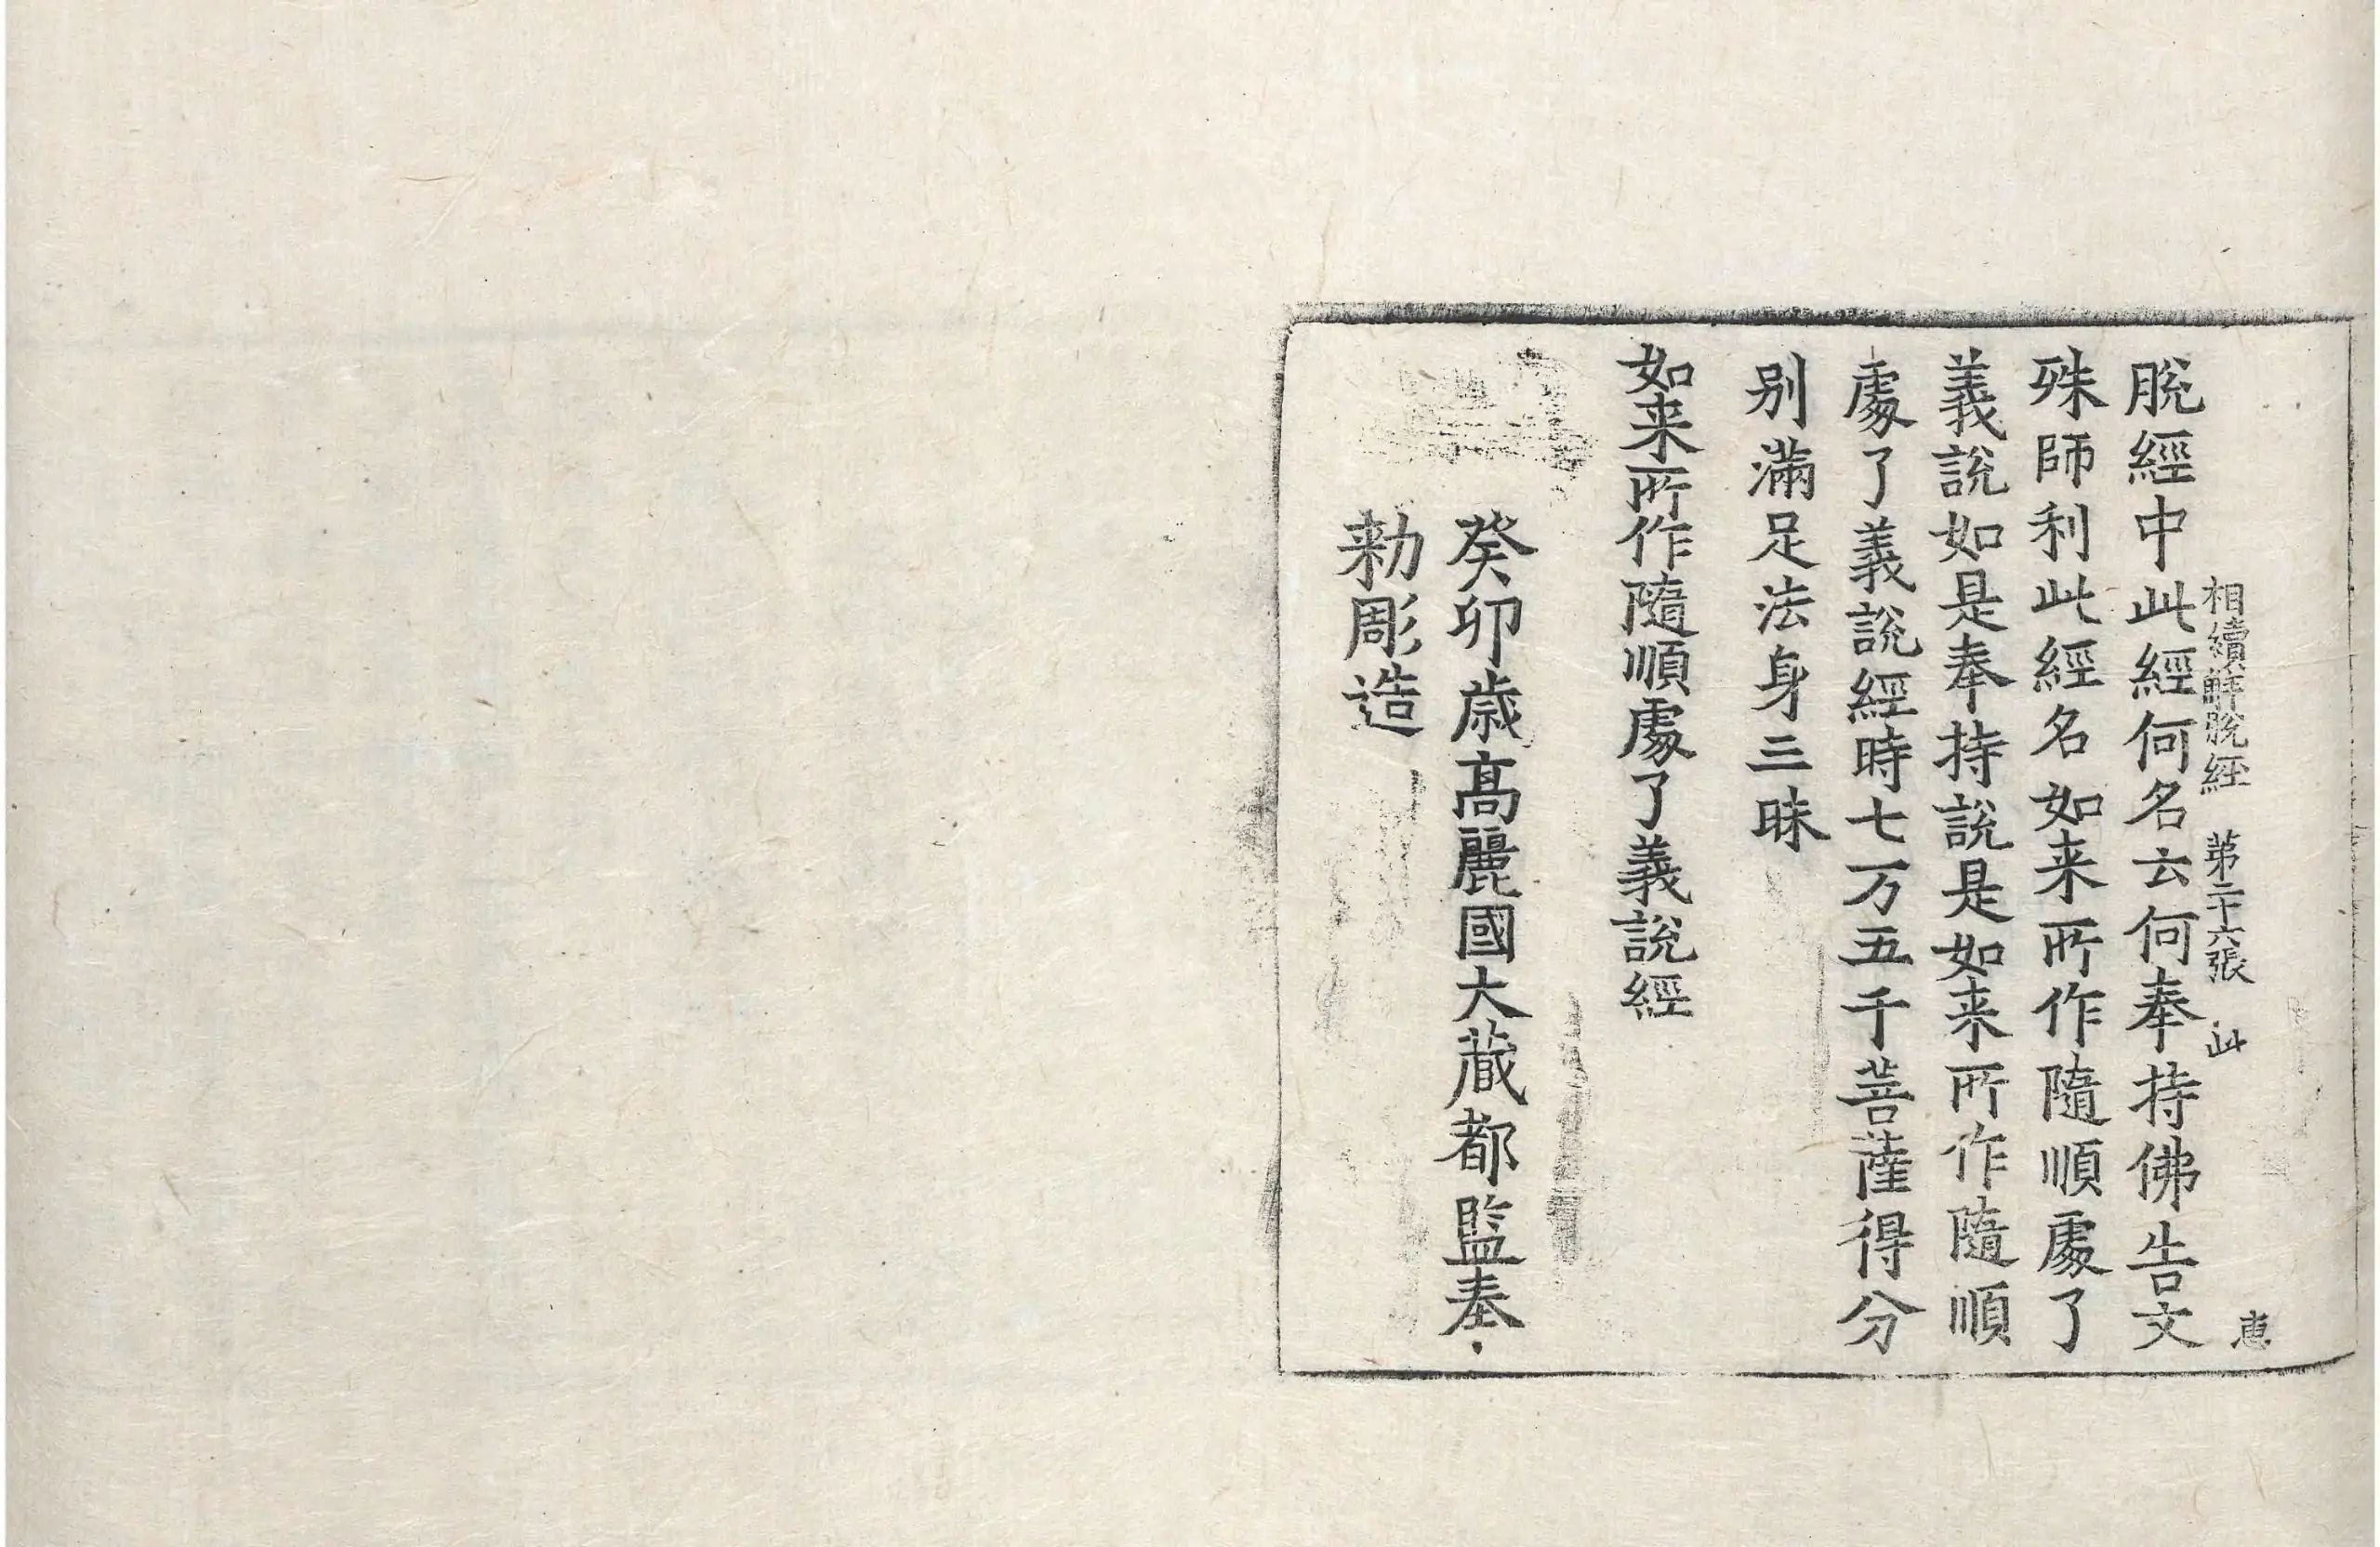 相續解脫經 第二十六張 此 恵
脫經中此經何名云何奉持佛告文
殊師利此經名如来所作隨順處了
義說如是奉持說是如来所作隨順
處了義說經時七万五千菩薩得分
别滿足法身三昧
如来所作隨順處了義說經
癸卯歳髙麗國大蔵都監奉
勑彫造